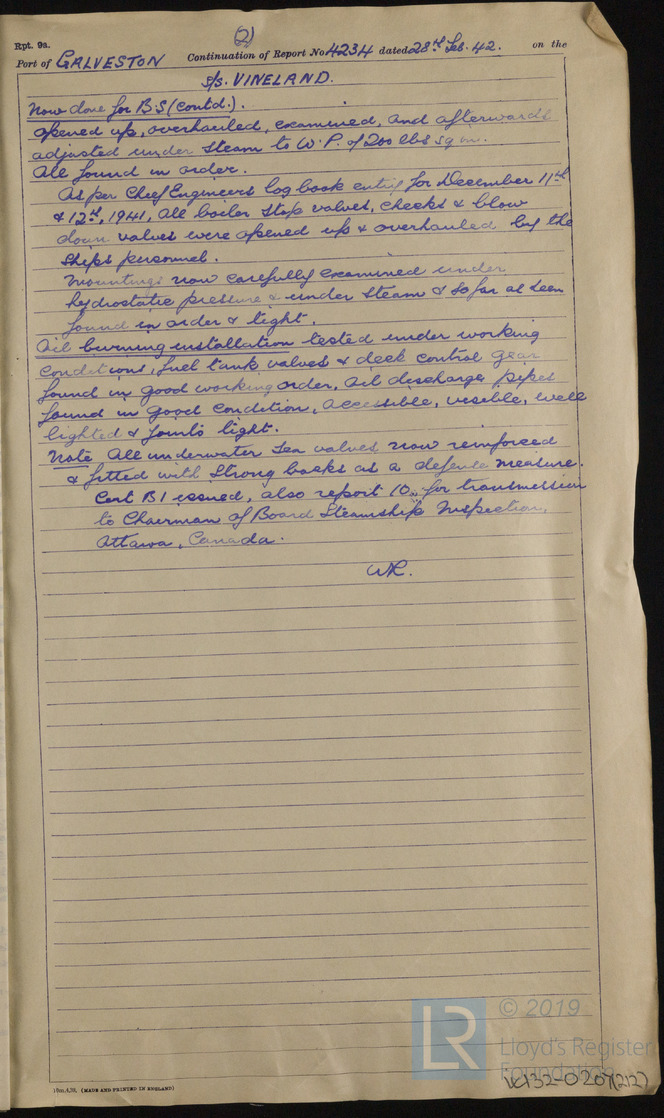 (2)
Rpt. 9a.
Port of GALVESTON Continuation of Report No 4234 dated 28th Feb. 42. on the
s/s. VINELAND.
Now done for B.S (contd.).
opened up, overhauled, examined, and afterwards
adjusted under steam to W.P. of 200 lbs sq in.
All found in order.
As per Chief Engineers log book entry for December 11th
& 12th, 1941, all boiler stop valves, checks & blow
down valves were opened up & overhauled by the
ships personnel.
Mountings now carefully examined under
hydrostatic pressure & under steam & so far as seen
found in order & tight.
Oil burning installation tested under working
conditions, fuel tank valves & deck control gear
found in good working order, oil discharge pipes
found in good condition, accessible, visible, well
lighted & joints tight.
Note All underwater sea valves now reinforced
& fitted with strong backs as a defense measure.
Cert B1 issued, also report 10 for transmission
to Chairman of Board Steamship Inspection,
Ottawa, Canada.
WR.
(MADE AND PRINTED IN ENGLAND)
LR
© 2019
Lloyd's Register
Foundation
W132-0207(2/2)